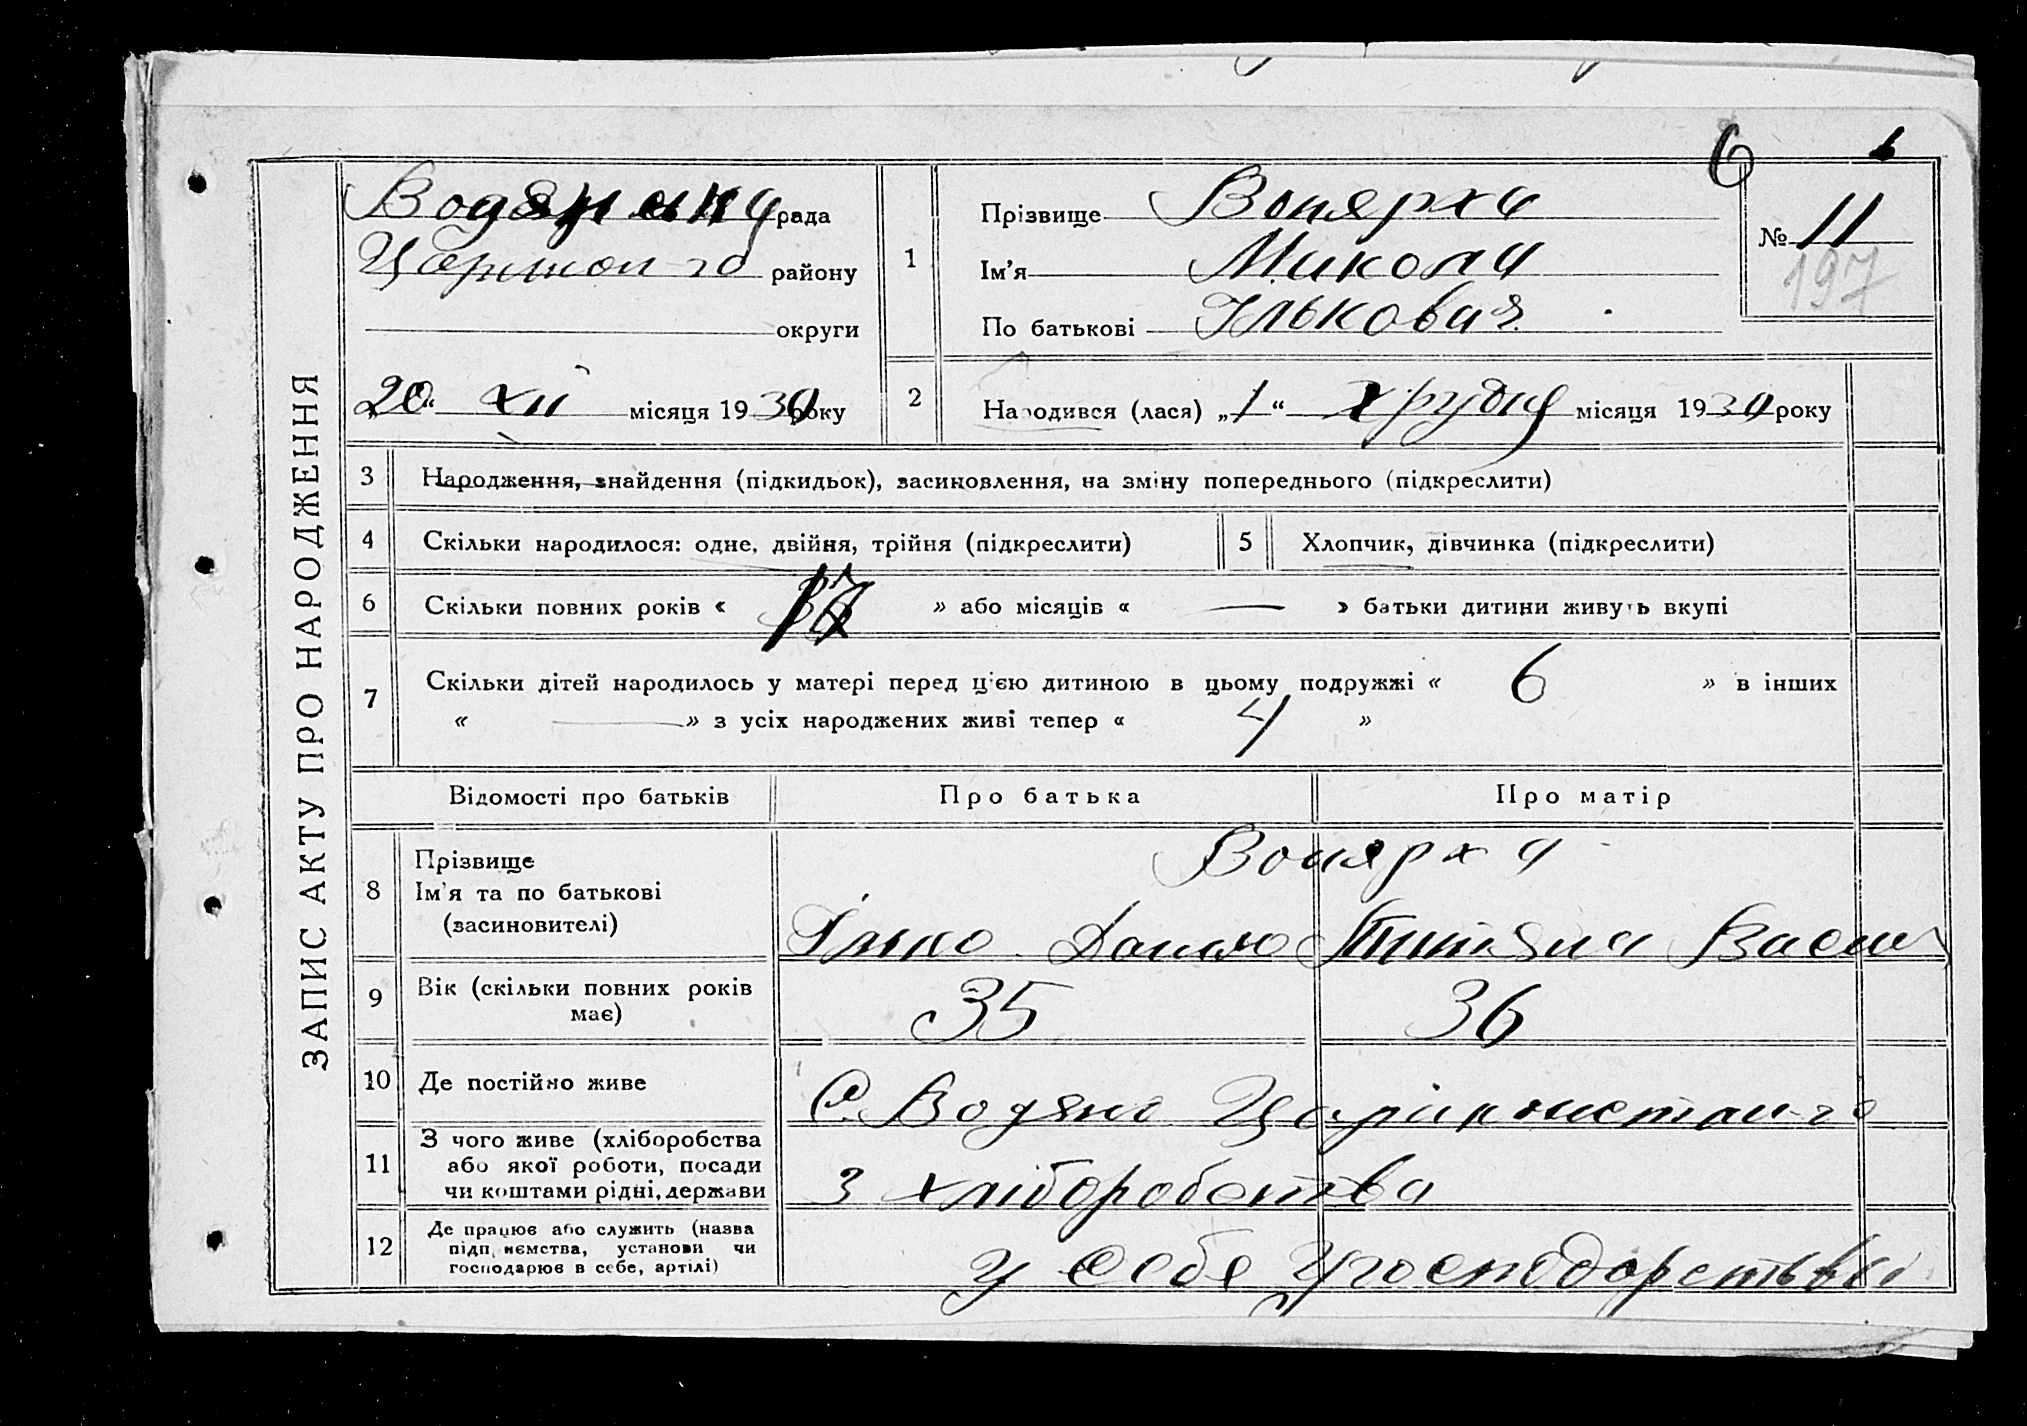 6
ЗАПИС АКТУ ПРО НАРОДЖЕННЯ
Водянська рада
району
округи
„20“ XII місяця 1930 року
1
Прізвище Вонярха
Ім’я Микола
По батькові Ількович
№ 11
197
2
Народився (лася) „1“ грудня місяця 1930 року
3 Народження, знайдення (підкидьок), засиновлення, на зміну попереднього (підкреслити)
4 Скільки народилося: одне, двійня, трійня (підкреслити)
5 Хлопчик, дівчинка (підкреслити)
6 Скільки повних років « 17 » або місяців « — » батьки дитини живуть вкупі
7 Скільки дітей народилось у матері перед цією дитиною в цьому подружжі « 6 » в інших
« — » з усіх народжених живі тепер « 4 »
Відомості про батьків Про батька Про матір
8 Прізвище
Ім’я та по батькові
(засиновителі)
Вонярха
Ілько Тетяна Васил
9 Вік (скільки повних років
має)
35 36
10 Де постійно живе
С. Водяно
11 З чого живе (хліборобства
або якої роботи, посади
чи коштами рідні, держави
З хліборобства
12 Де працює або служить (назва
підприємства, установи чи
господарює в себе, артілі)
у себе у господарстві